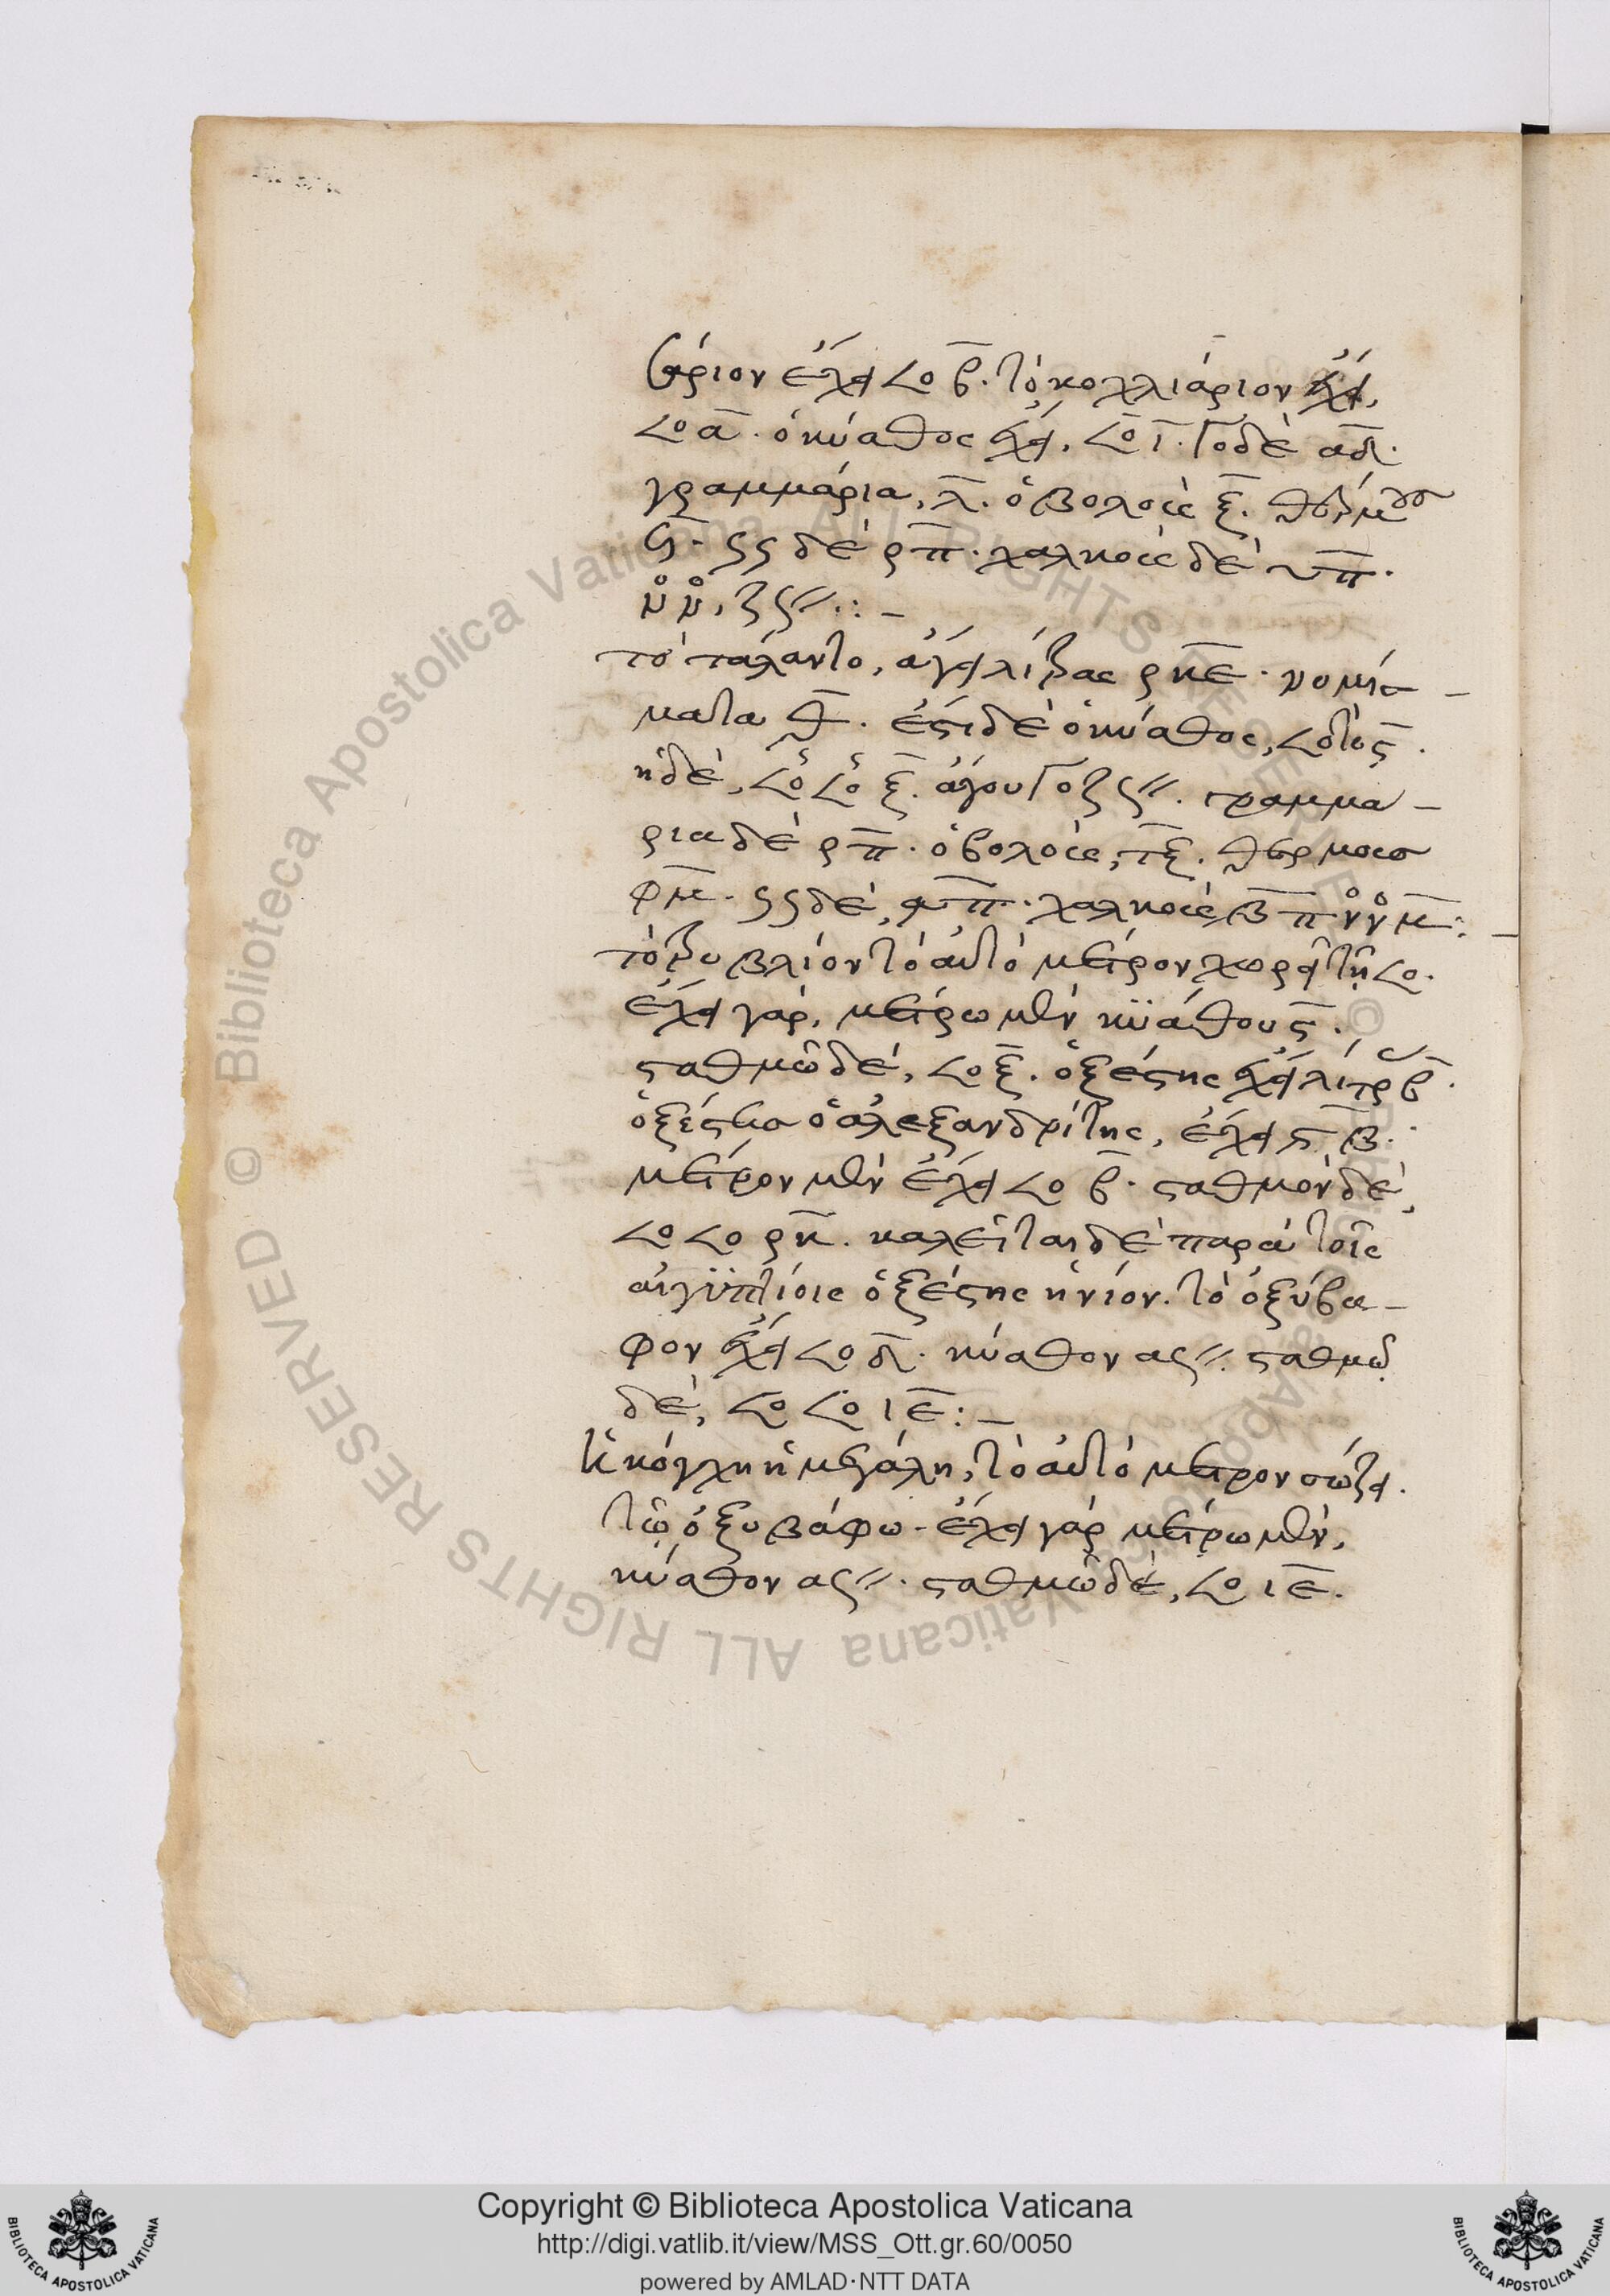 τάριον ἔχει 𐅻ο β̄. τὸ κοχλιάριον ἔχει,
𐅻ο ᾱ. ὁ κύαθος ἔχει, 𐅻ο ῑ. Γο δὲ ᾱδ̄.
γραμμάρια, λ̄. ὀβολοὺς ξ̄. θερμους
ϟ̄. ςς δὲ ρ̄π̄. χαλκοὺς δὲ ῡπ̄.
τὸ τάλαντο, ἄγει λίτρας ρκ̄ε̄. νομίσ-
ματα θ̄. ἔστι δὲ ὁ κύαθος,
ἄγου Γο ζς. γραμμα-
ρια δὲ ρ̄π̄. ὀβολοὺς, τ̄ξ̄. θερμους
φ̄μ̄. ςς δὲ, ψ̄π̄. χαλκοὺς β̄π̄
τὸ τρυβλίον τὸ αὐτὸ μέτρον χωρεῖ τῆ 𐅻ο.
ἔχει γάρ, μέτρω μὲν κϋάθους ς̄.
σταθμῶ δέ, 𐅻ο ξ̄. ὁ ξέστης ἔχει λίτρ β̄.
ὁ ξέστης ὁ ἀλεξανδρίτης, ἔχει ς̄ β̄.
μέτρον μὲν ἔχει 𐅻ο β̄. σταθμὸν δέ,
𐅻ο 𐅻ο ρ̄κ̄. καλεῖται δὲ παρὰ τοῖς
αἰγϋπτίοις ὁ ξέστης ἡνίον. τὸ ὀξύβα-
φον ἔχει 𐅻ο δ̄. κύαθον ας. σταθμῶ
δέ, 𐅻ο 𐅻ο ιε̄:–
Ἡ κόγχη ἡ μεγάλη, τὸ αὐτὸ μέτρον σώζει.
τῶ ὀξυβάφω – ἔχει γάρ μέτρω μὲν,
κύαθον ας. σταθμῶ δέ, 𐅻ο ιε̄.
Copyright © Biblioteca Apostolica Vaticana
http://digi.vatlib.it/view/MSS_Ott.gr.60/0050
powered by AMLAD·NTT DATA
© Biblioteca Apostolica Vaticana ALL RIGHTS RESERVED
BIBLIOTECA APOSTOLICA VATICANA
BIBLIOTECA APOSTOLICA VATICANA